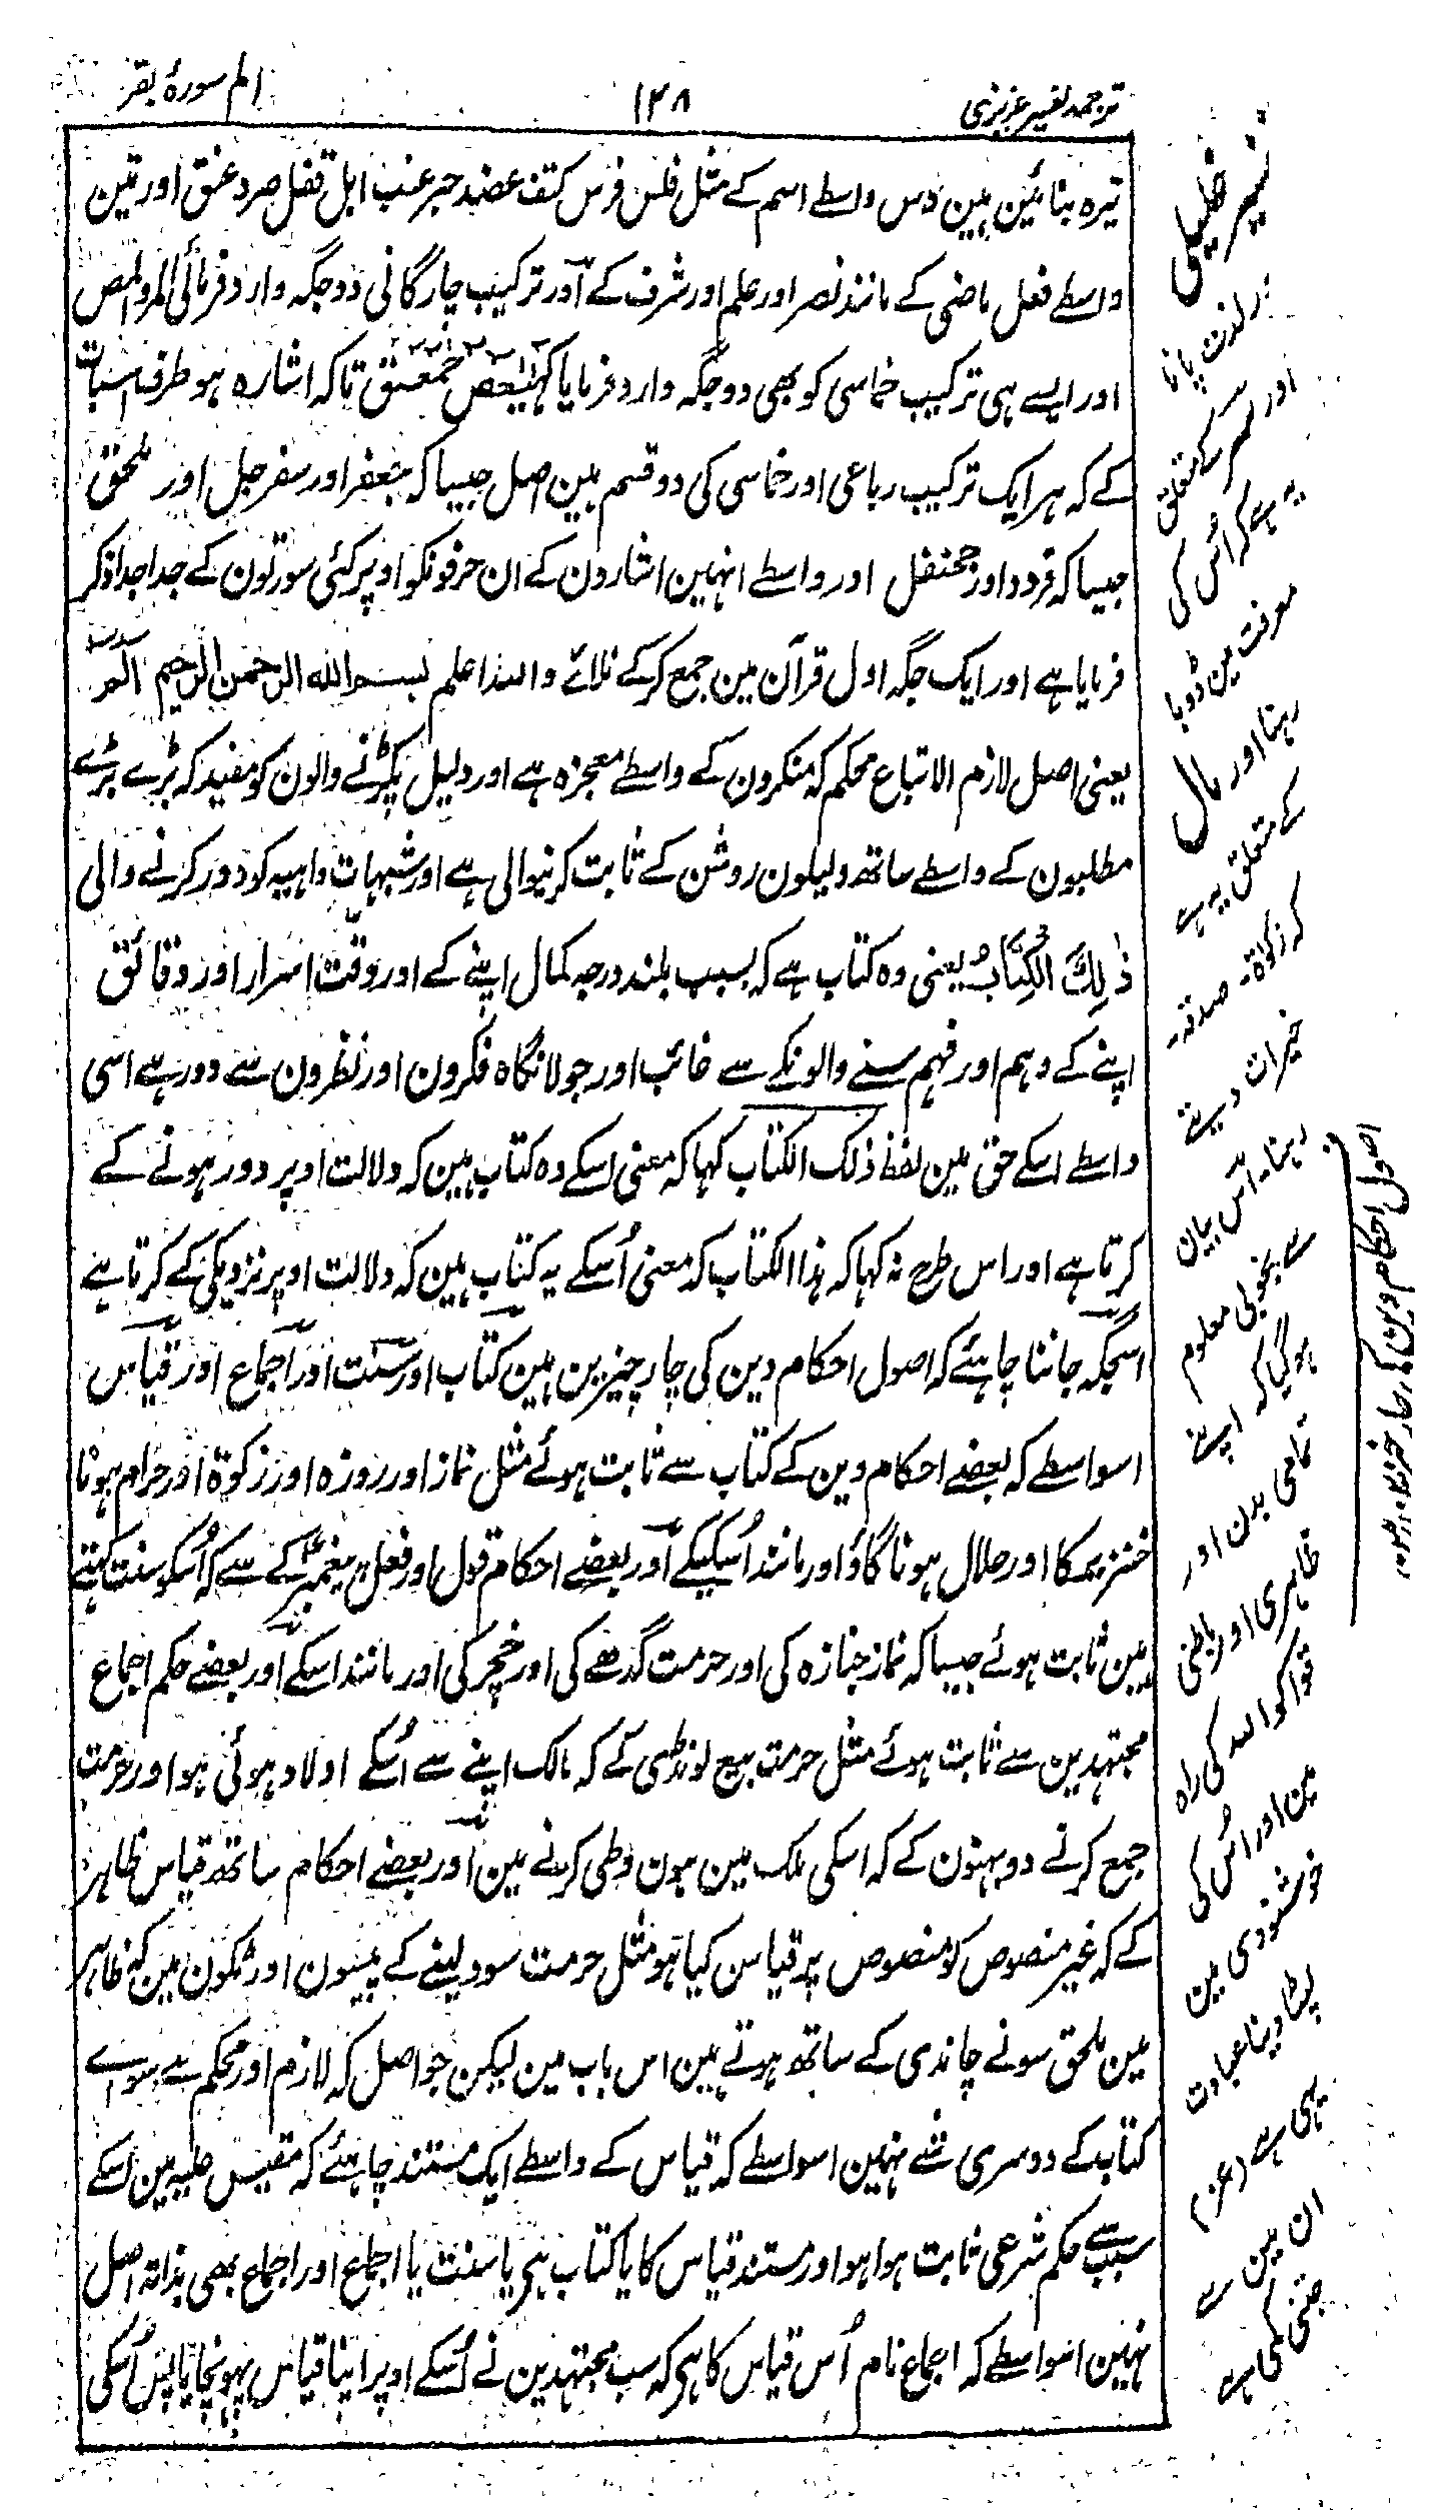 ترجمہ تفسیر عزیزی
۱۲۸
الم سورۂ بقر
تیرہ بنائین ہین دس واسطے اسم کے مثل فلس فرس کتف عضد حبر عنب ابل قفل صرد عنق اور تین
واسطے فعل ماضی کے مانند نصر اور علم اور شرف کے اور ترکیب چارگانی دو جگہ وارد فرمائی المر والمص
اور ایسے ہی ترکیب خماسی کو بھی دو جگہ وارد فرمایا کہیعص حمعسق تاکہ اشارہ ہو طرف اسبات
کے کہ ہر ایک ترکیب رباعی اور خماسی کی دو قسم ہین اصل جیسا کہ جعفر اور سفرجل اور ملحق
جیسا کہ قردد اور جحنفل اور واسطے انہین اشارون کے ان حرفونکو اوپر کئی سورتون کے جدا جدا ذکر
فرمایا ہے اور ایک جگہ اول قرآن مین جمع کرکے نلائے واللہ اعلم بسم اللہ الرحمن الرحیم الم
یعنی اصل لازم الاتباع محکم کہ منکرون کے واسطے معجزہ ہے اور دلیل پکڑنے والون کو مفید کہ بڑے بڑے
مطلبون کے واسطے ساتھ دلیلون روشن کے ثابت کرنیوالی ہے اور شبہات واہیہ کو دور کرنے والی
ذٰلِكَ الْكِتَابُ یعنی وہ کتاب ہے کہ بسبب بلند درجہ کمال اپنے کے اور وقّت اسرار اور دقائق
اپنے کے وہم اور فہم سننے والونکے سے غائب اور جولانگاہ فکرون اور نظرون سے دور ہے اسی
واسطے اسکے حق مین لفظ ذلک الکتاب کہا کہ معنی اسکے وہ کتاب ہین کہ دلالت اوپر دور ہونے کے
کرتا ہے اور اس طرح نہ کہا کہ ہذا الکتاب کہ معنی اُسکے یہ کتاب ہین کہ دلالت اوپر نزدیکی کے کرتا ہے
اسجگہ جاننا چاہئے کہ اصول احکام دین کی چار چیزین ہین کتاب اور سنت اور اجماع اور قیاس
اسواسطے کہ بعضے احکام دین کے کتاب سے ثابت ہوئے مثل نماز اور روزہ اور زکوۃ اور حرام ہونا
خنزیر کا اور حلال ہونا گاؤ اور مانند اُسکیکے اور بعضے احکام قول اور فعل پیغمبرؐ کے سے کہ اُسکو سنت کہتے
ہین ثابت ہوئے جیسا کہ نماز جنازہ کی اور حرمت گدھے کی اور خچر کی اور مانند اسکے اور بعضے حکم اجماع
مجتہدین سے ثابت ہوئے مثل حرمت بیع لونڈی کے کہ مالک اپنے سے اُسکے اولاد ہوئی ہو اور حرمت
جمع کرنے دو بہنون کے کہ اسکی ملک مین ہون وطی کرنے مین اور بعضے احکام ساتھ قیاس ظاہر
کے کہ غیر منصوص کو منصوص پر قیاس کیا ہو مثل حرمت سود لینے کے پیسون اور ٹکون مین کہ ظاہر
مین ملحق سونے چاندی کے ساتھ ہوتے ہین اس باب مین لیکن جو اصل کہ لازم اور محکم ہے سواے
کتابکے دوسری شے نہین اسواسطے کہ قیاس کے واسطے ایک مستند چاہئے کہ مقیس علیہ مین اسکے
سبب سے حکم شرعی ثابت ہوا ہو اور مستند قیاس کا یا کتاب ہی یا سنت یا اجماع اور اجماع بھی بذاتہ اصل
نہین اسواسطے کہ اجماع نام اُس قیاس کا ہی کہ سب مجتہدین نے اُسکے اوپر اپنا قیاس پہونچایا پس اُسکی
اور سر کے متعلق
یہ ہے کہ اُس کی
معرفت مین ڈوبا
رہنا اور مال
کے متعلق یہ ہے
کہ زکوٰۃ۔ صدقہ۔
خیرات دیتے
رہنا۔ اس بیان
سے بخوبی معلوم
ہوگیا کہ اپنے
تمامی بدن اور
ظاہری اور باطنی
قوا کو اللہ کی راہ
مین اور اُس کی
خوشنودی مین
لٹا دینا عبادت
یہی ہے
ان مین سے
جتنی کمی ہے